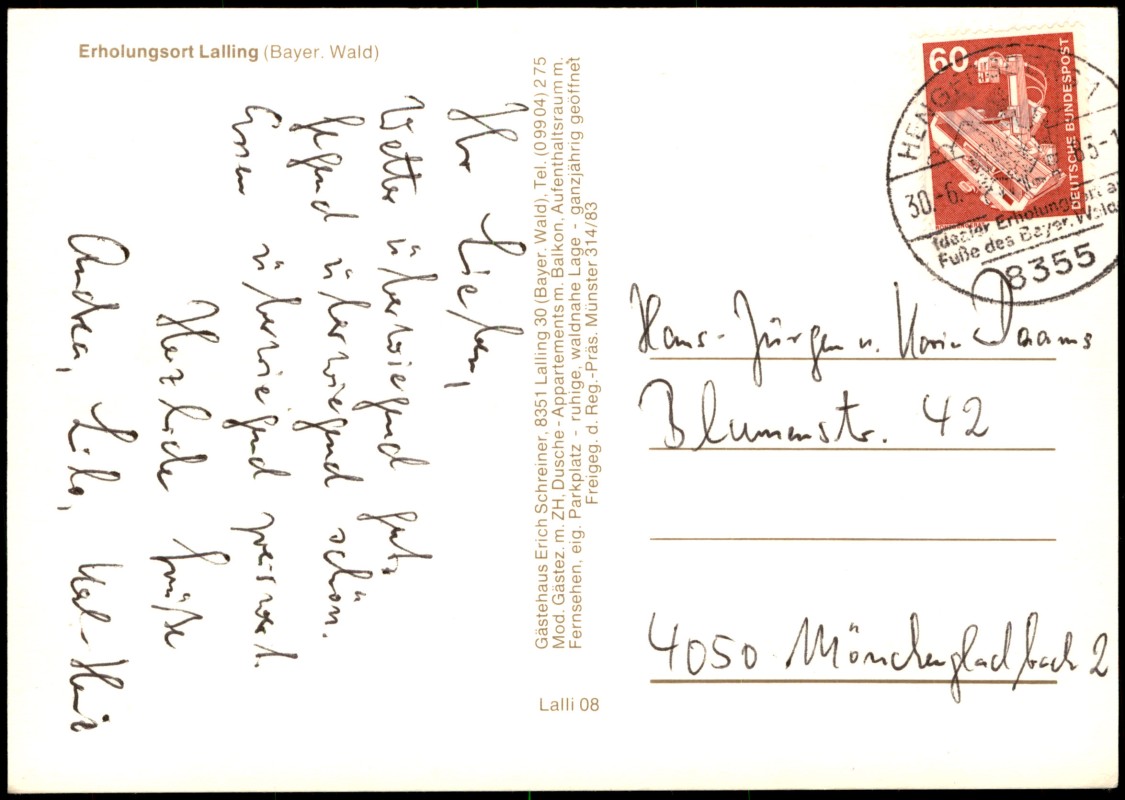 Erholungsort Lalling (Bayer. Wald)
Ihr Lieben,
Wetter überwiegend gut,
Gegend überwiegend schön.
Essen überwiegend preiswert.
Herzliche Grüße
Andrea, Lilo, Karl-Heinz
Gästehaus Erich Schreiner, 8351 Lalling 30 (Bayer. Wald), Tel. (0 99 04) 2 75
Mod. Gästez. m. ZH, Dusche - Appartements m. Balkon, Aufenthaltsraum m.
Fernsehen, eig. Parkplatz - ruhige, waldnahe Lage - ganzjährig geöffnet
Freigeg. d. Reg.-Präs. Münster 314/83
Lalli 08
60
DEUTSCHE BUNDESPOST
30.-6.
83-1
Idealer Erholungsort am
Fuße des Bayer. Wald
8355
Hans-Jürgen u. Karin Daams
Blumenstr. 42
4050 Mönchengladbach 2